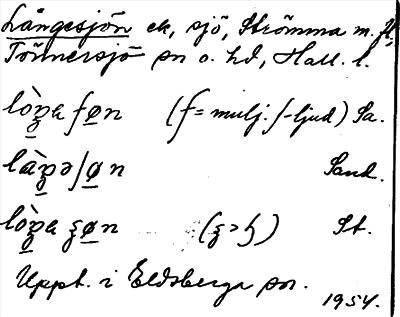 Långesjön ek, sjö, Strömma m. fl.,
Tönnersjö sn o. hd, Hall. l.
lòŋa ſøn (ſ = mulj. ʃ-ljud) Sa.
là̀ŋə ʃøn Sand.
lòŋa ʂøn (ʂ > ɧ) St.
Uppt. i Eldsberga sn.
1954.